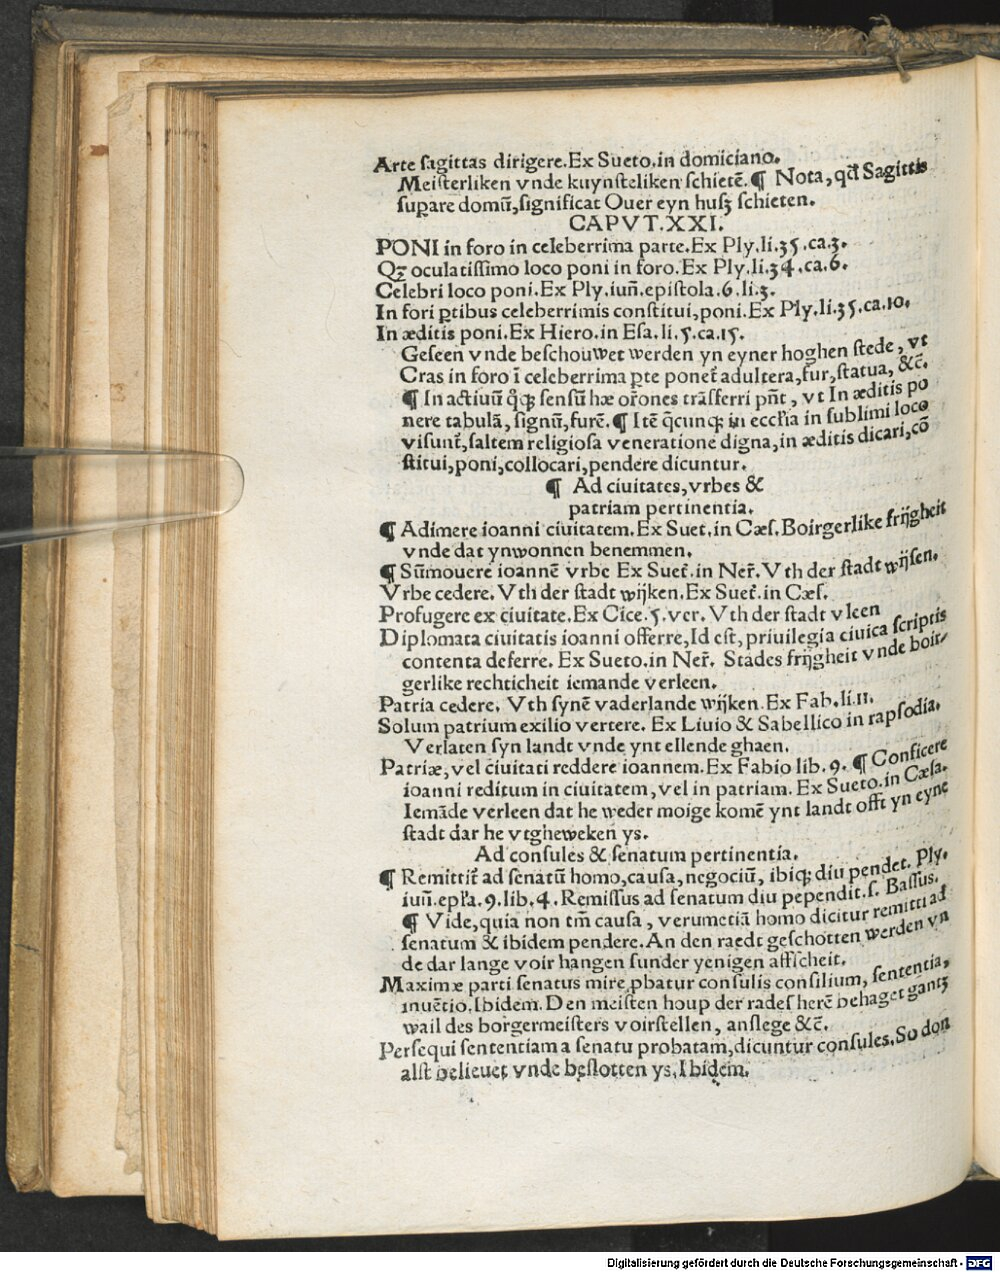 Arte ſagittas dirigere.Ex Sueto.in domiciano.
Meiſterliken vnde kuynſteliken ſchietē.¶ Nota,qđ Sagittis
ſupare domū,ſignificat Ouer eyn huſz ſchieten.
CAPVT.XXI.
PONI in foro in celeberrima parte.Ex Ply.li.35.ca.3.
Qꝫ oculatiſſimo loco poni in foro.Ex Ply.li.34.ca.6.
Celebri loco poni.Ex Ply.iuñ.epiſtola.6.li.3.
In fori ꝑtibus celeberrimis conſtitui,poni.Ex Ply.li.35.ca.10.
In æditis poni.Ex Hiero.in Eſa.li.5.ca.15.
Geſeen vnde beſchouwet werden yn eyner hoghen ſtede, vt
Cras in foro ī celeberrima ꝑte ponet̄ adultera,fur,ſtatua, &c̄.
¶ In actiuū q̊qꝫ ſenſū hæ or̄ones trāſferri pn̄t, vt In æditis po
nere tabulā, ſignū,furē.¶ Itē q̄cunqꝫ in eccľia in ſublimi loco
viſunt̄,ſaltem religioſa veneratione digna,in æditis dicari,cō
ſtitui,poni,collocari,pendere dicuntur.
¶ Ad ciuitates,vrbes &
patriam pertinentia.
¶ Adimere ioanni ciuitatem.Ex Suet.in Cæſ.Boirgerlike frijgheit
vnde dat ynwonnen benemmen.
¶ Sūmouere ioannē vrbe Ex Suet̄.in Ner̄.Vth der ſtadt wijſen.
Vrbe cedere.Vth der ſtadt wijken.Ex Suet̄.in Cæſ.
Profugere ex ciuitate.Ex Cice.5.ver. Vth der ſtadt vleen
Diplomata ciuitatis ioanni offerre,Id eſt,priuilegia ciuica ſcriptis
contenta deferre. Ex Sueto.in Ner̄. Stades frijgheit vnde boir⸗
gerlike rechticheit iemande verleen.
Patria cedere. Vth ſynē vaderlande wijken.Ex Fab.li.11.
Solum patrium exilio vertere. Ex Liuio & Sabellico in rapſodia.
Verlaten ſyn landt vnde ynt ellende ghaen.
Patriæ,vel ciuitati reddere ioannem.Ex Fabio lib.9.¶ Conficere
ioanni reditum in ciuitatem,vel in patriam. Ex Sueto.in Cæſa.
Iemāde verleen dat he weder moige komē ynt landt offt yn eyne
ſtadt dar he vtgheweken ys.
Ad conſules & ſenatum pertinentia.
¶ Remittit̄ ad ſenatū homo,cauſa,negociū, ibiqꝫ diu pendet. Ply.
iuñ.epľa.9.lib.4.Remiſſus ad ſenatum diu pependit.ſ. Baſſus.
¶ Vide,quia non tm̄ cauſa, verumetiā homo dicitur remitti ad
ſenatum & ibidem pendere.An den raedt geſchotten werden vn
de dar lange voir hangen ſunder yenigen affſcheit.
Maximæ parti ſenatus mire ꝓbatur conſulis conſilium, ſententia,
inuētio.Ibidem.Den meiſten houp der radeſ herē behaget gantz
wail des borgermeiſters voirſtellen, anſlege &c̄.
Perſequi ſententiam a ſenatu probatam,dicuntur conſules.So don
alſt belieuet vnde beſlotten ys.Ibidem.
Digitalisierung gefördert durch die Deutsche Forschungsgemeinschaft - DFG